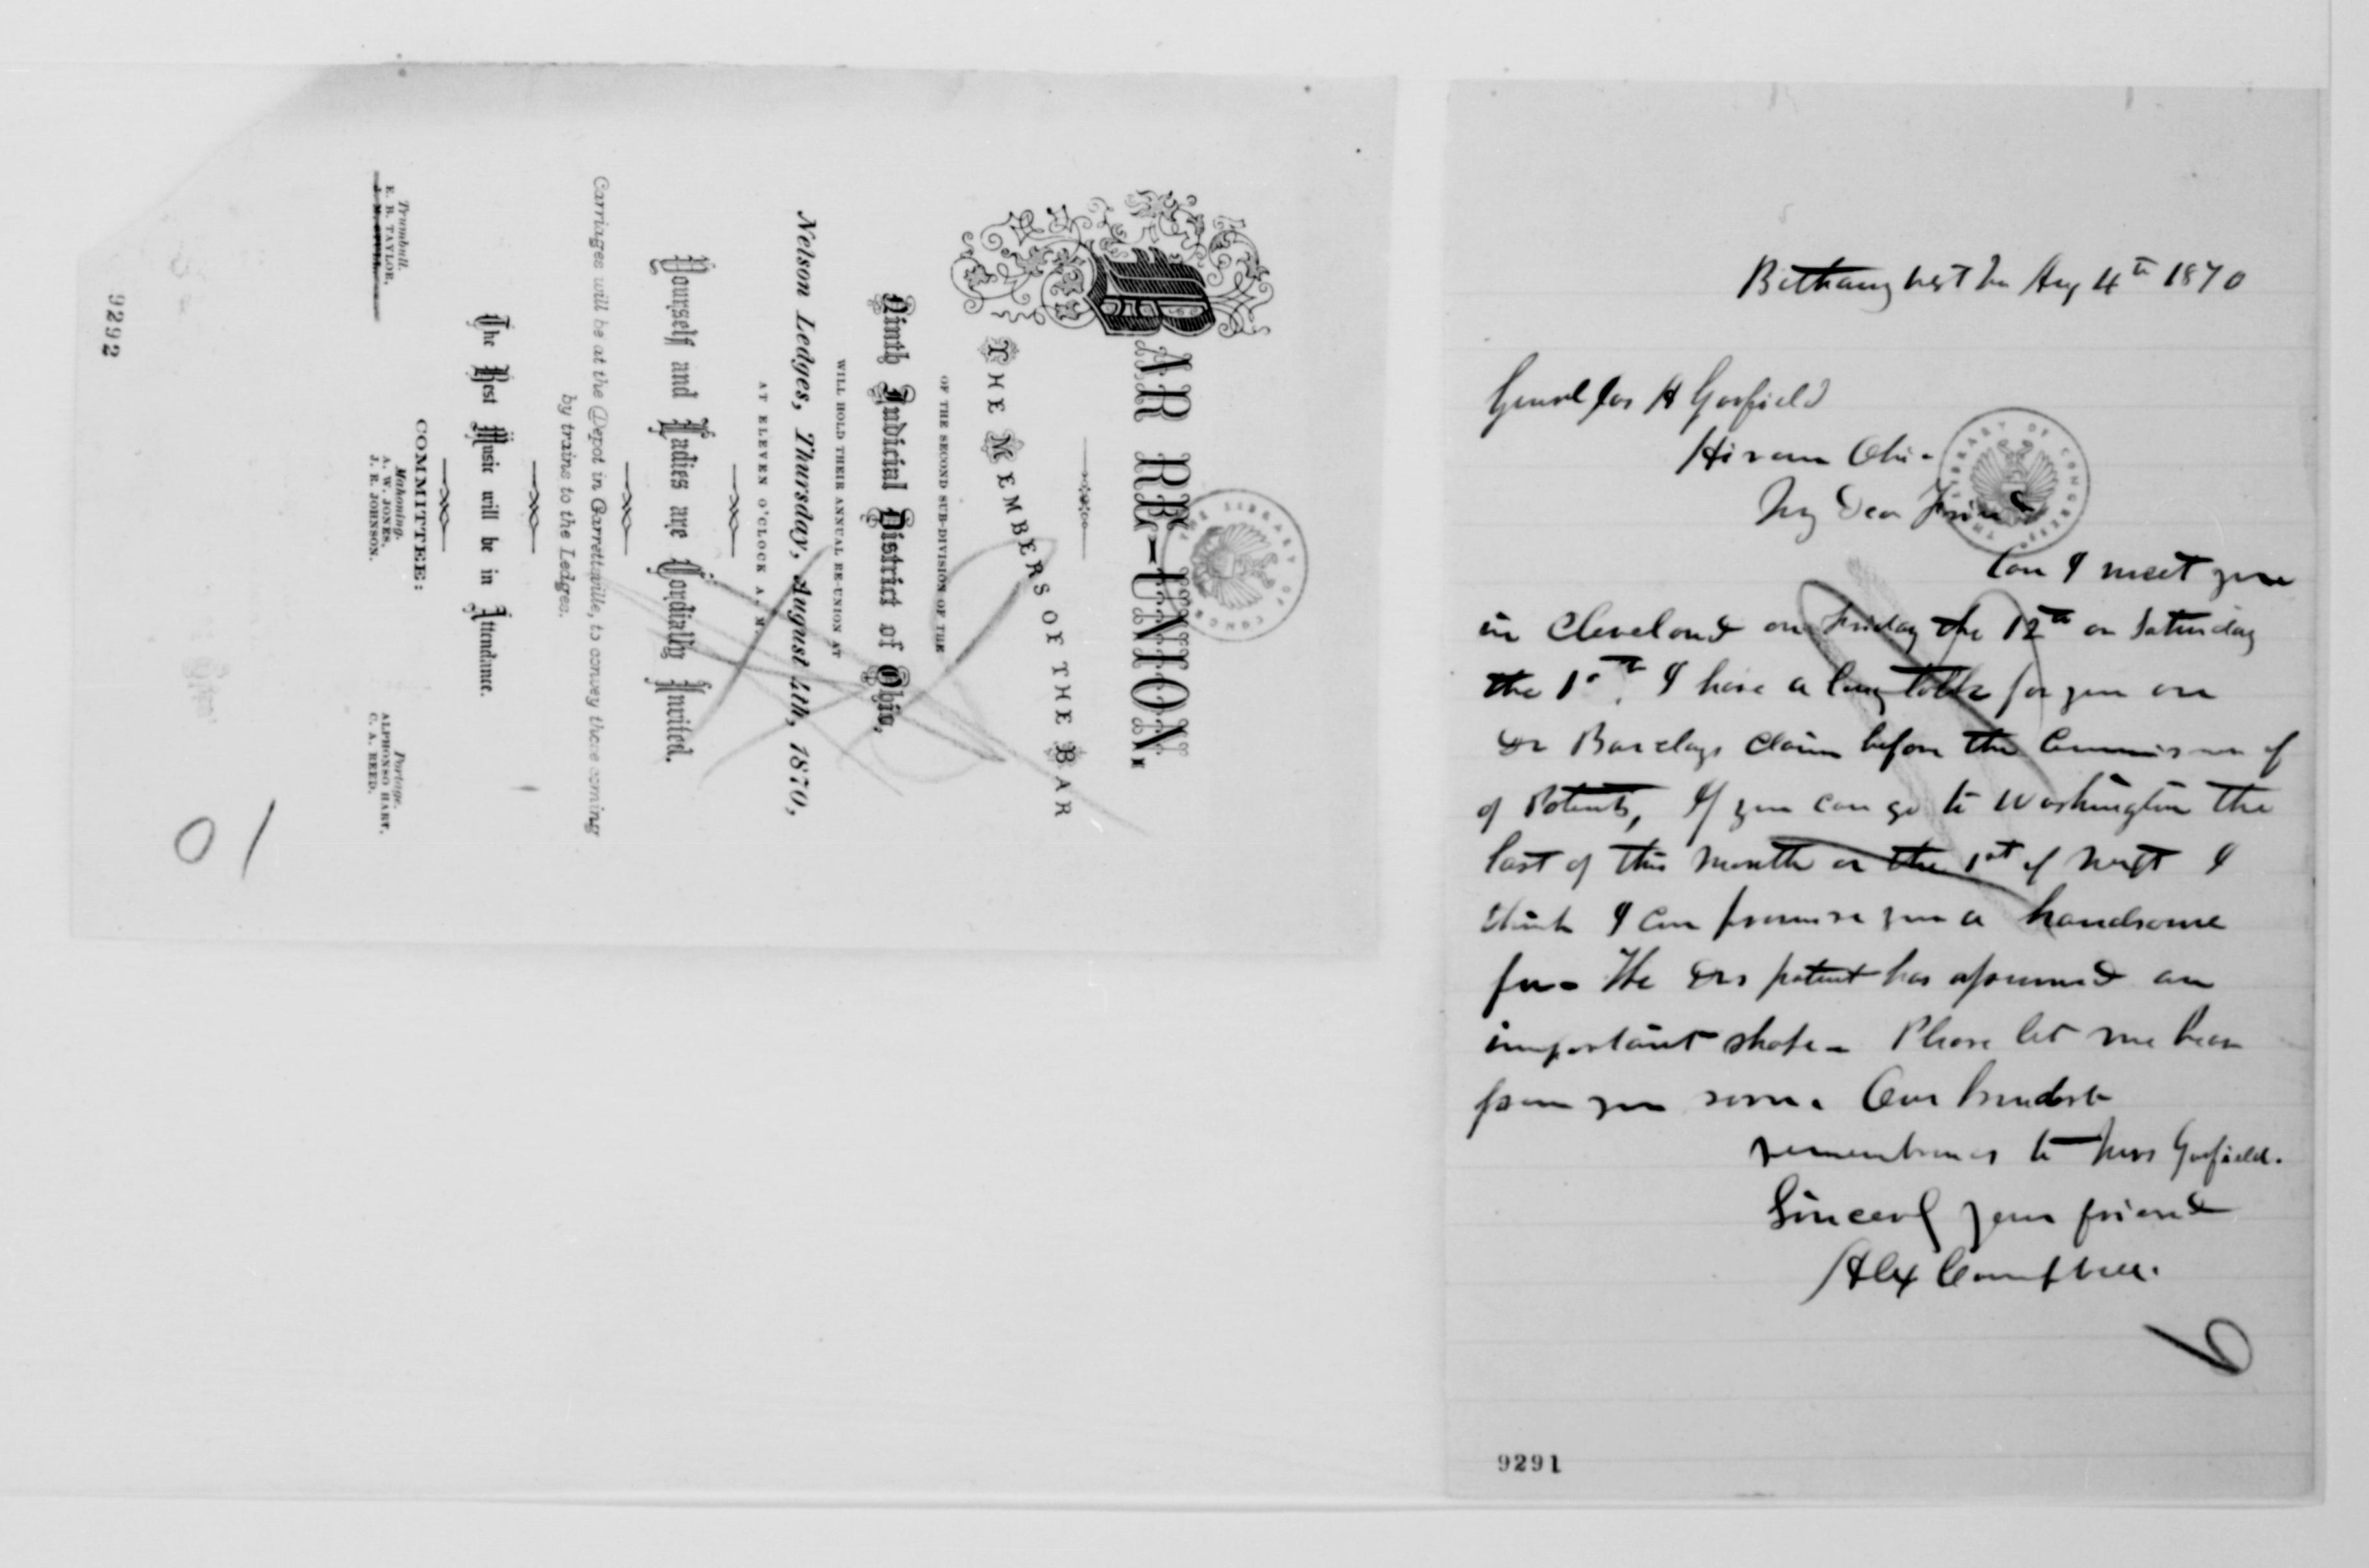 BAR RE-UNION.
THE MEMBERS OF THE BAR
OF THE SECOND SUB-DIVISION OF THE
Ninth Judicial District of Ohio,
WILL HOLD THEIR ANNUAL RE-UNION AT
Nelson Ledges, Thursday, August 4th, 1870,
AT ELEVEN O'CLOCK A. M.
Yourself and Ladies are Cordially Invited.
Carriages will be at the Depot in Garrettsville, to convey those coming
by trains to the Ledges.
The Best Music will be in Attendance.
COMMITTEE:
Trumbull.
E. B. TAYLOR.
Mahoning.
A. W. JONES,
J. R. JOHNSON.
Portage.
ALPHONSO HART,
C. A. REED.
10
9292
THE LIBRARY OF CONGRESS
Bethany West Va Aug 4th 1870
Genrl Jas A Garfield
Hiram Ohio
My Dear Friend
THE LIBRARY OF CONGRESS
Can I meet you
in Cleveland on Friday the 12th or Saturday
the I have a long talk for you on
Dr Barclays claim before the of
of Patents, If you can go to Washington the
last of this month or the 1st of next I
think I can promise you a handsome
fee - The Drs patent has assumed an
important shape - Please let me hear
from you soon. Our kindest
remembrances to Mrs Garfield.
your friend
Alex Campbell.
6
9291